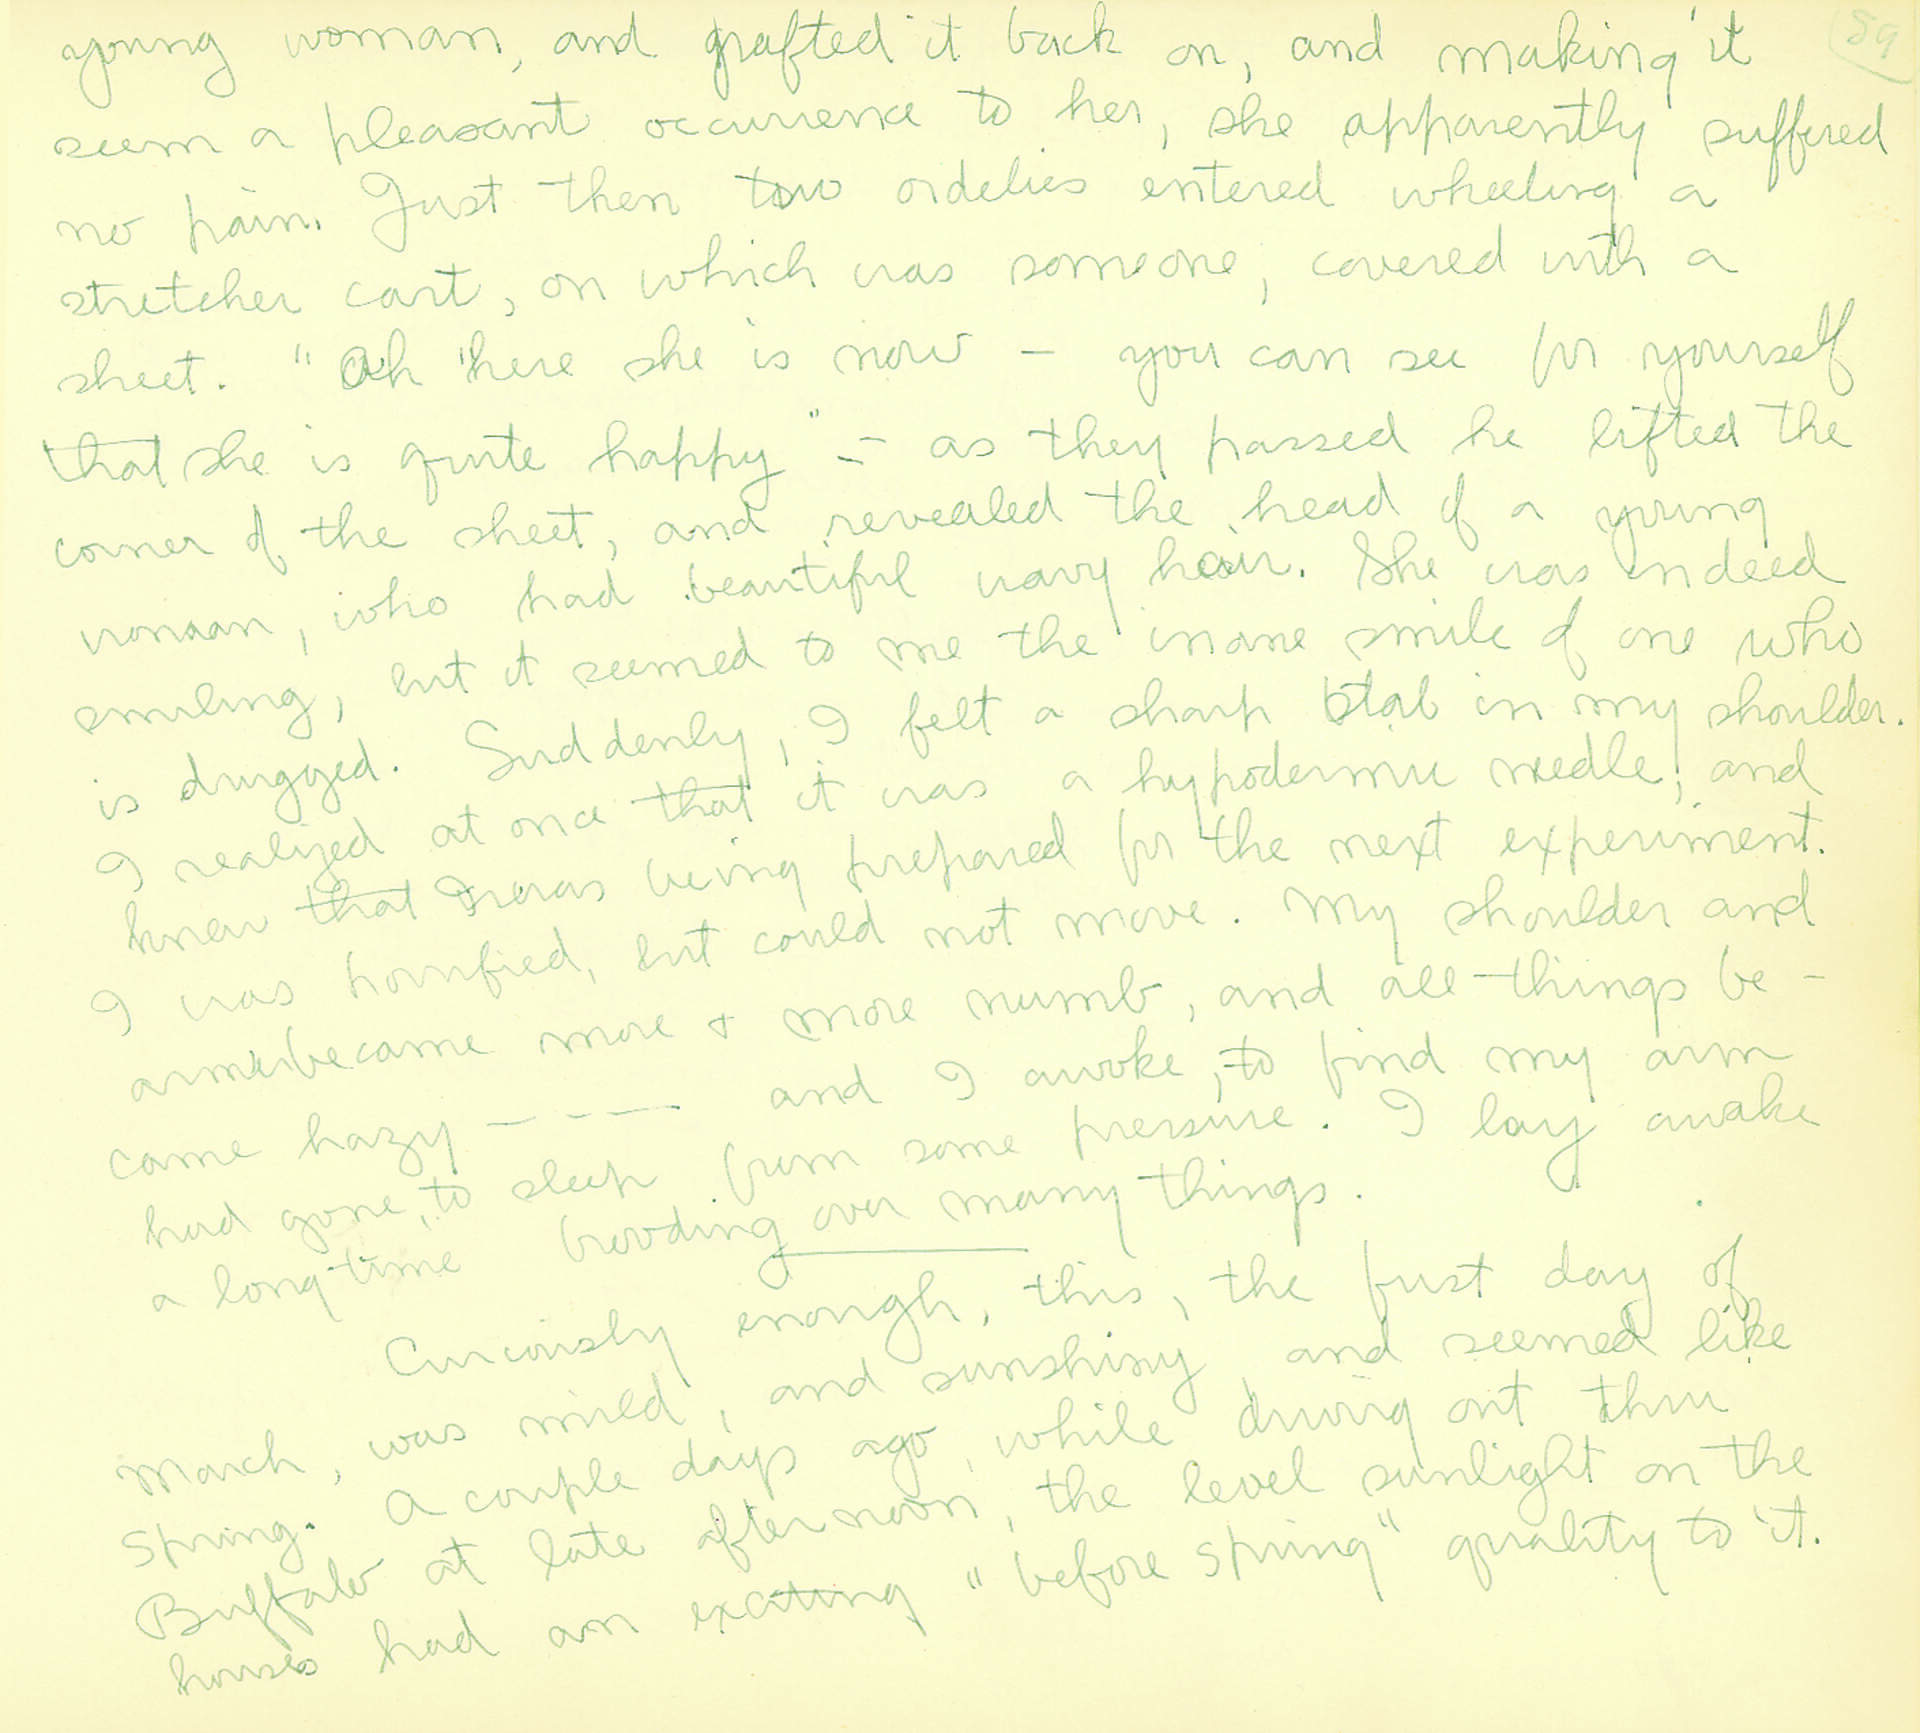 59
young woman, and grafted it back on, and making it
seem a pleasant occurrence to her, she apparently suffered
no pain. Just then two ordelies entered wheeling a
stretcher cart, on which was someone, covered with a
sheet. "Oh here she is now – you can see for yourself
that she is quite happy" – as they passed he lifted the
corner of the sheet, and revealed the head of a young
woman, who had beautiful wavy hair. She was indeed
smiling, but it seemed to me the inane smile of one who
is drugged. Suddenly, I felt a sharp stab in my shoulder.
I realized at once that it was a hypodermic needle, and
knew that I was being prepared for the next experiment.
I was horrified, but could not move. My shoulder and
arm became more & more numb, and all things be-
came hazy – – — and I awoke, to find my arm
had gone, to sleep from some pressure. I lay awake
a long time brooding over many things.
Curiously enough, this, the first day of
March, was mild, and sunshiny and seemed like
spring. A couple days ago, while driving out thru
Buffalo at late afternoon, the level sunlight on the
houses had an exciting "before spring" quality to it.